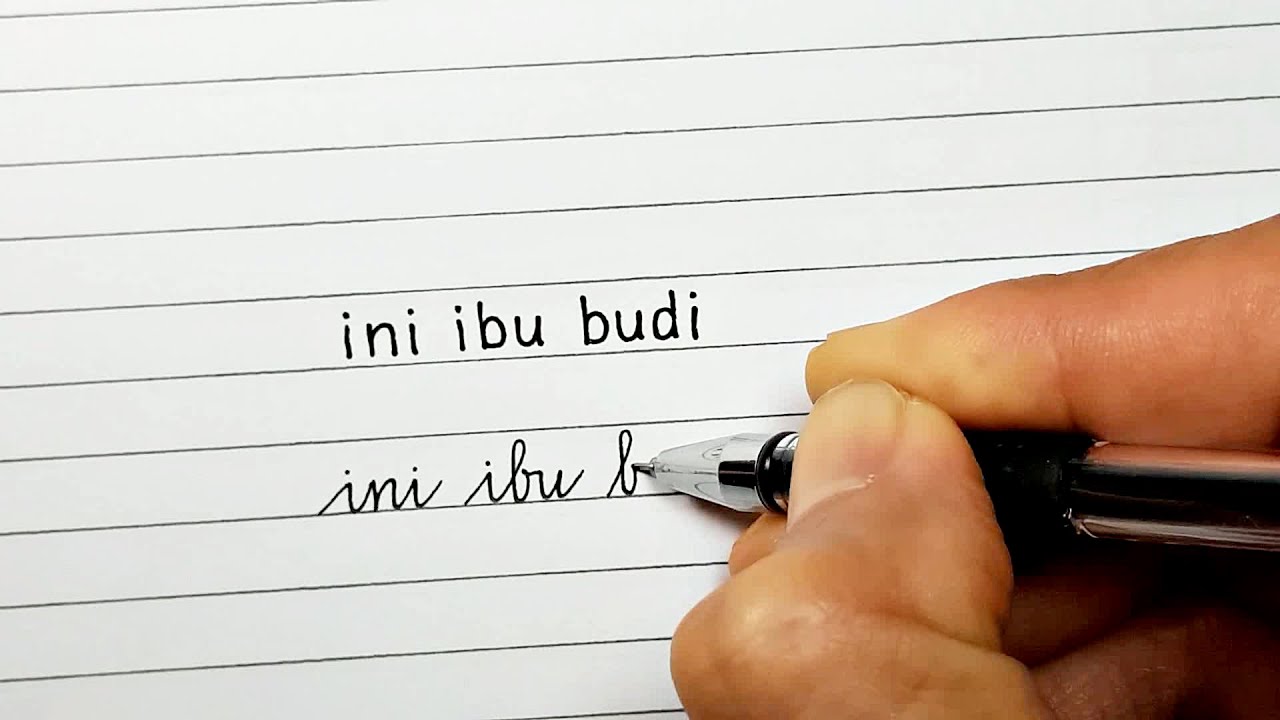 ini ibu budi
ini ibu b